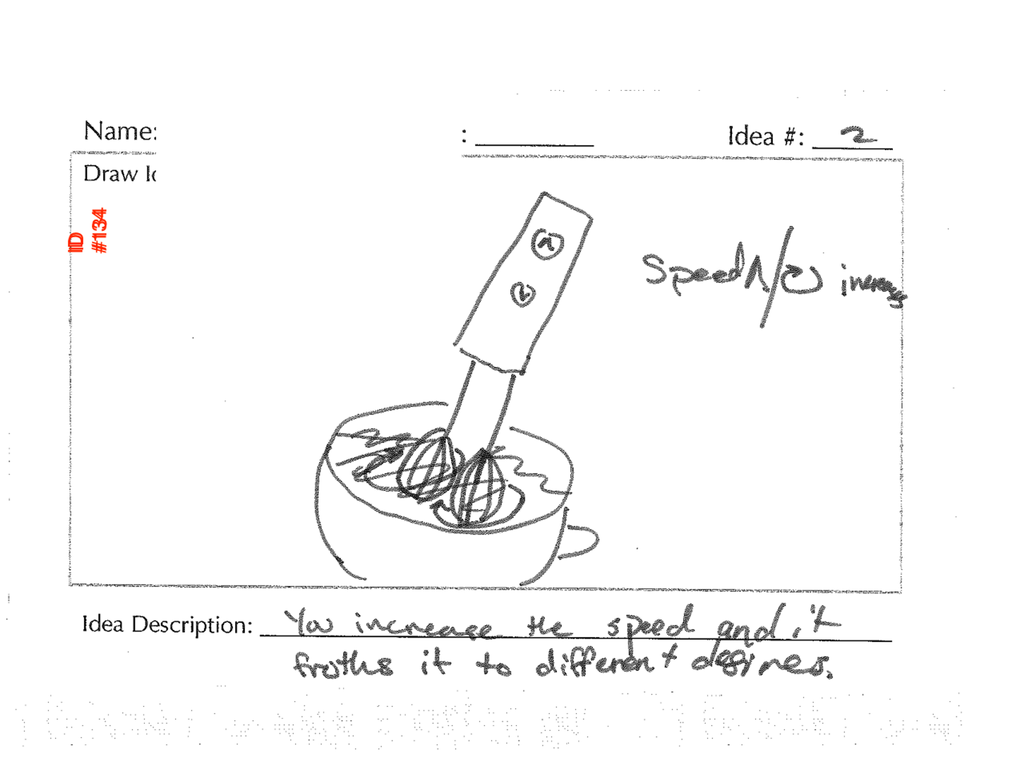 Name: : Idea #: 2
Draw Id
ID
#134
Speed / increase
Idea Description: You increase the speed and it
froths it to different degrees.